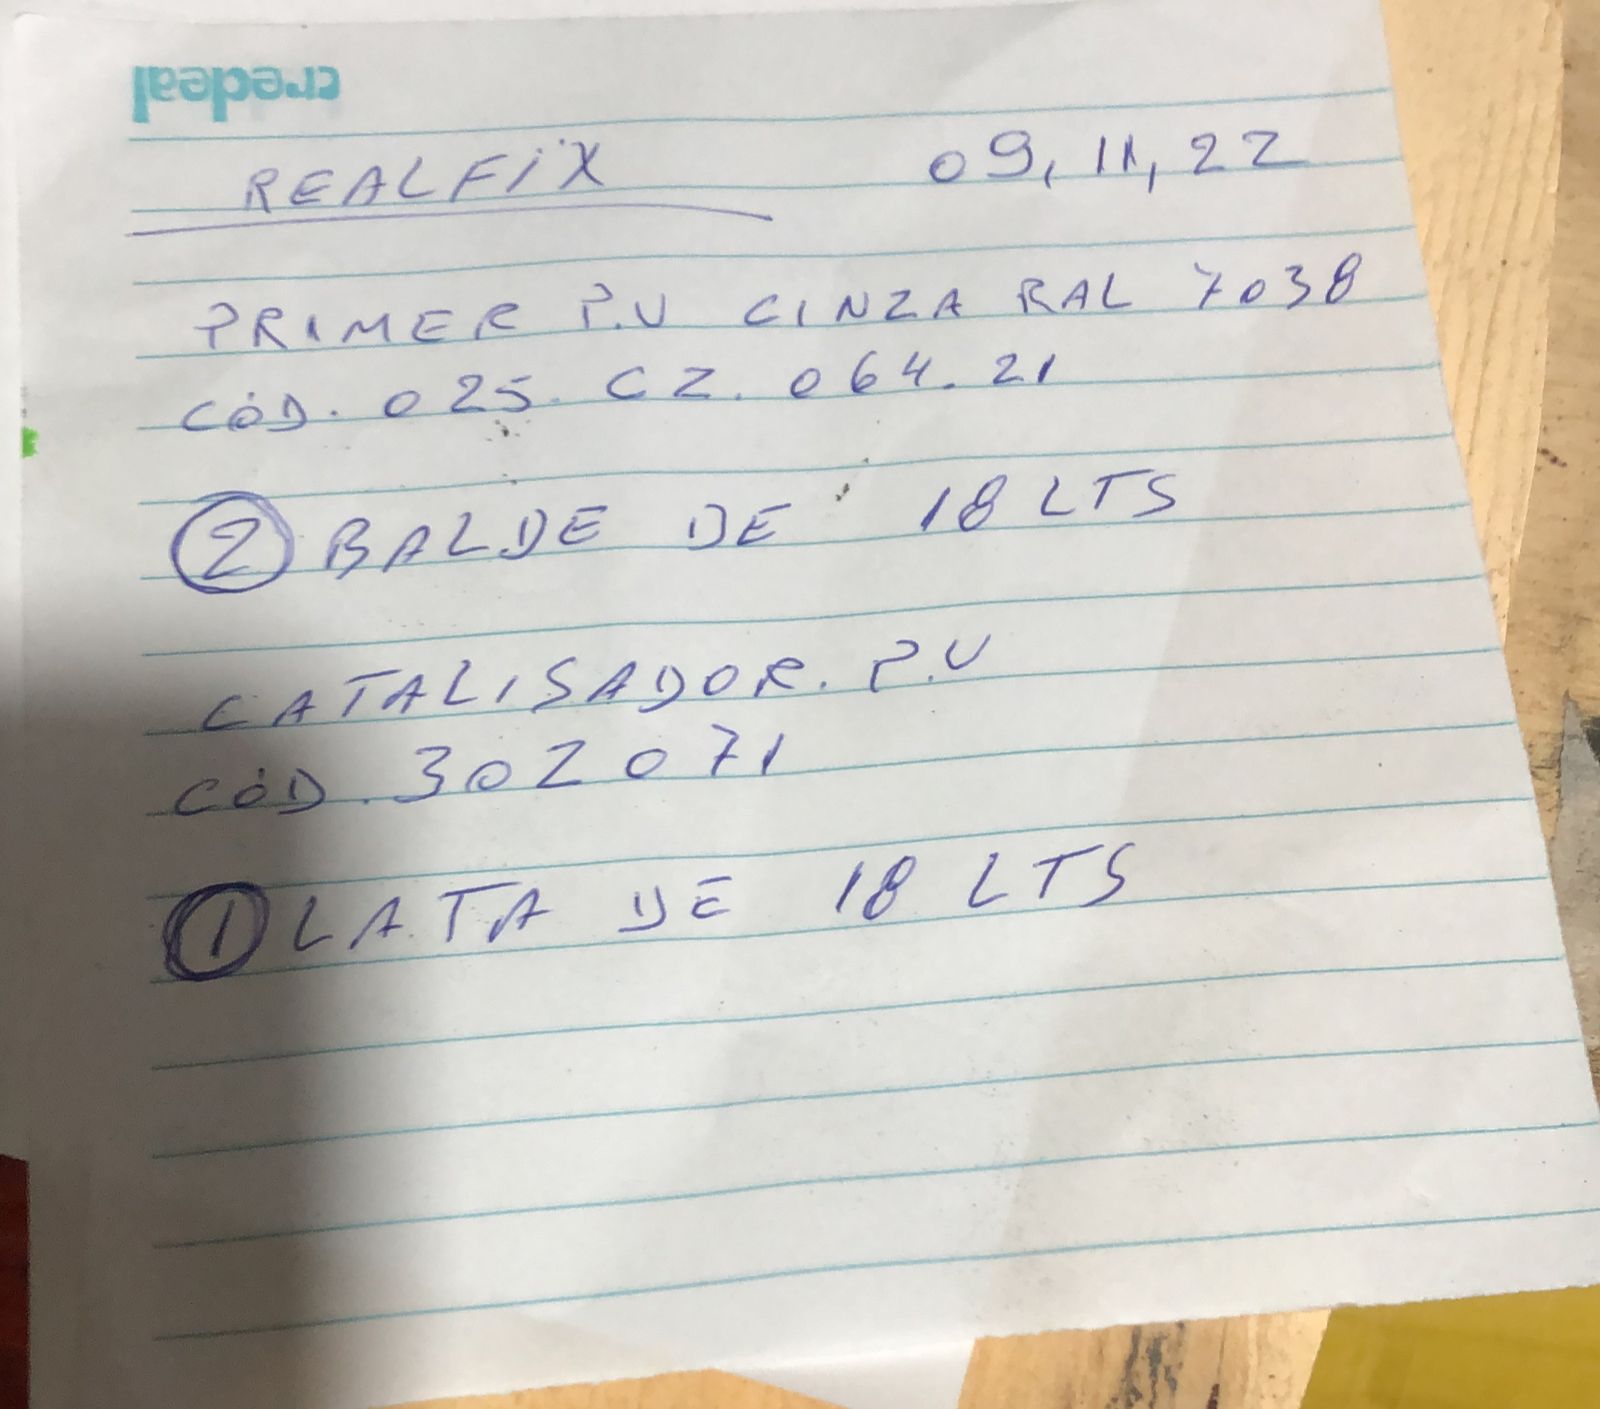 credeal
REALFIX 09,11,22
PRIMER P.U CINZA RAL 7038
CÓD. 025. CZ. 064. 21
2 BALDE DE 18 LTS
CATALISADOR. P.U
CÓD. 302071
1 LATA DE 18 LTS